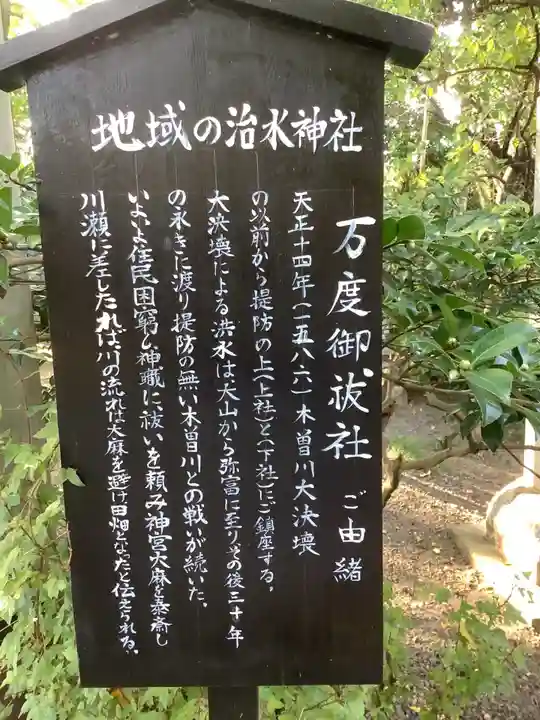 地域の治水神社
万度御祓社 ご由緒
天正十四年(一五八六)木曽川大決壊
の以前から提防の上(上社)と(下社)にご鎮座する。
大決壊による洪水は犬山から弥富に至りその後三十年
の永きに渡り提防の無い木曽川との戦いが続いた。
いよいよ住民困窮し神職に、祓いを頼み神宮大麻を奉斎し
川瀬に差したれば川の流れは大麻を避け田畑となったと伝えられる。